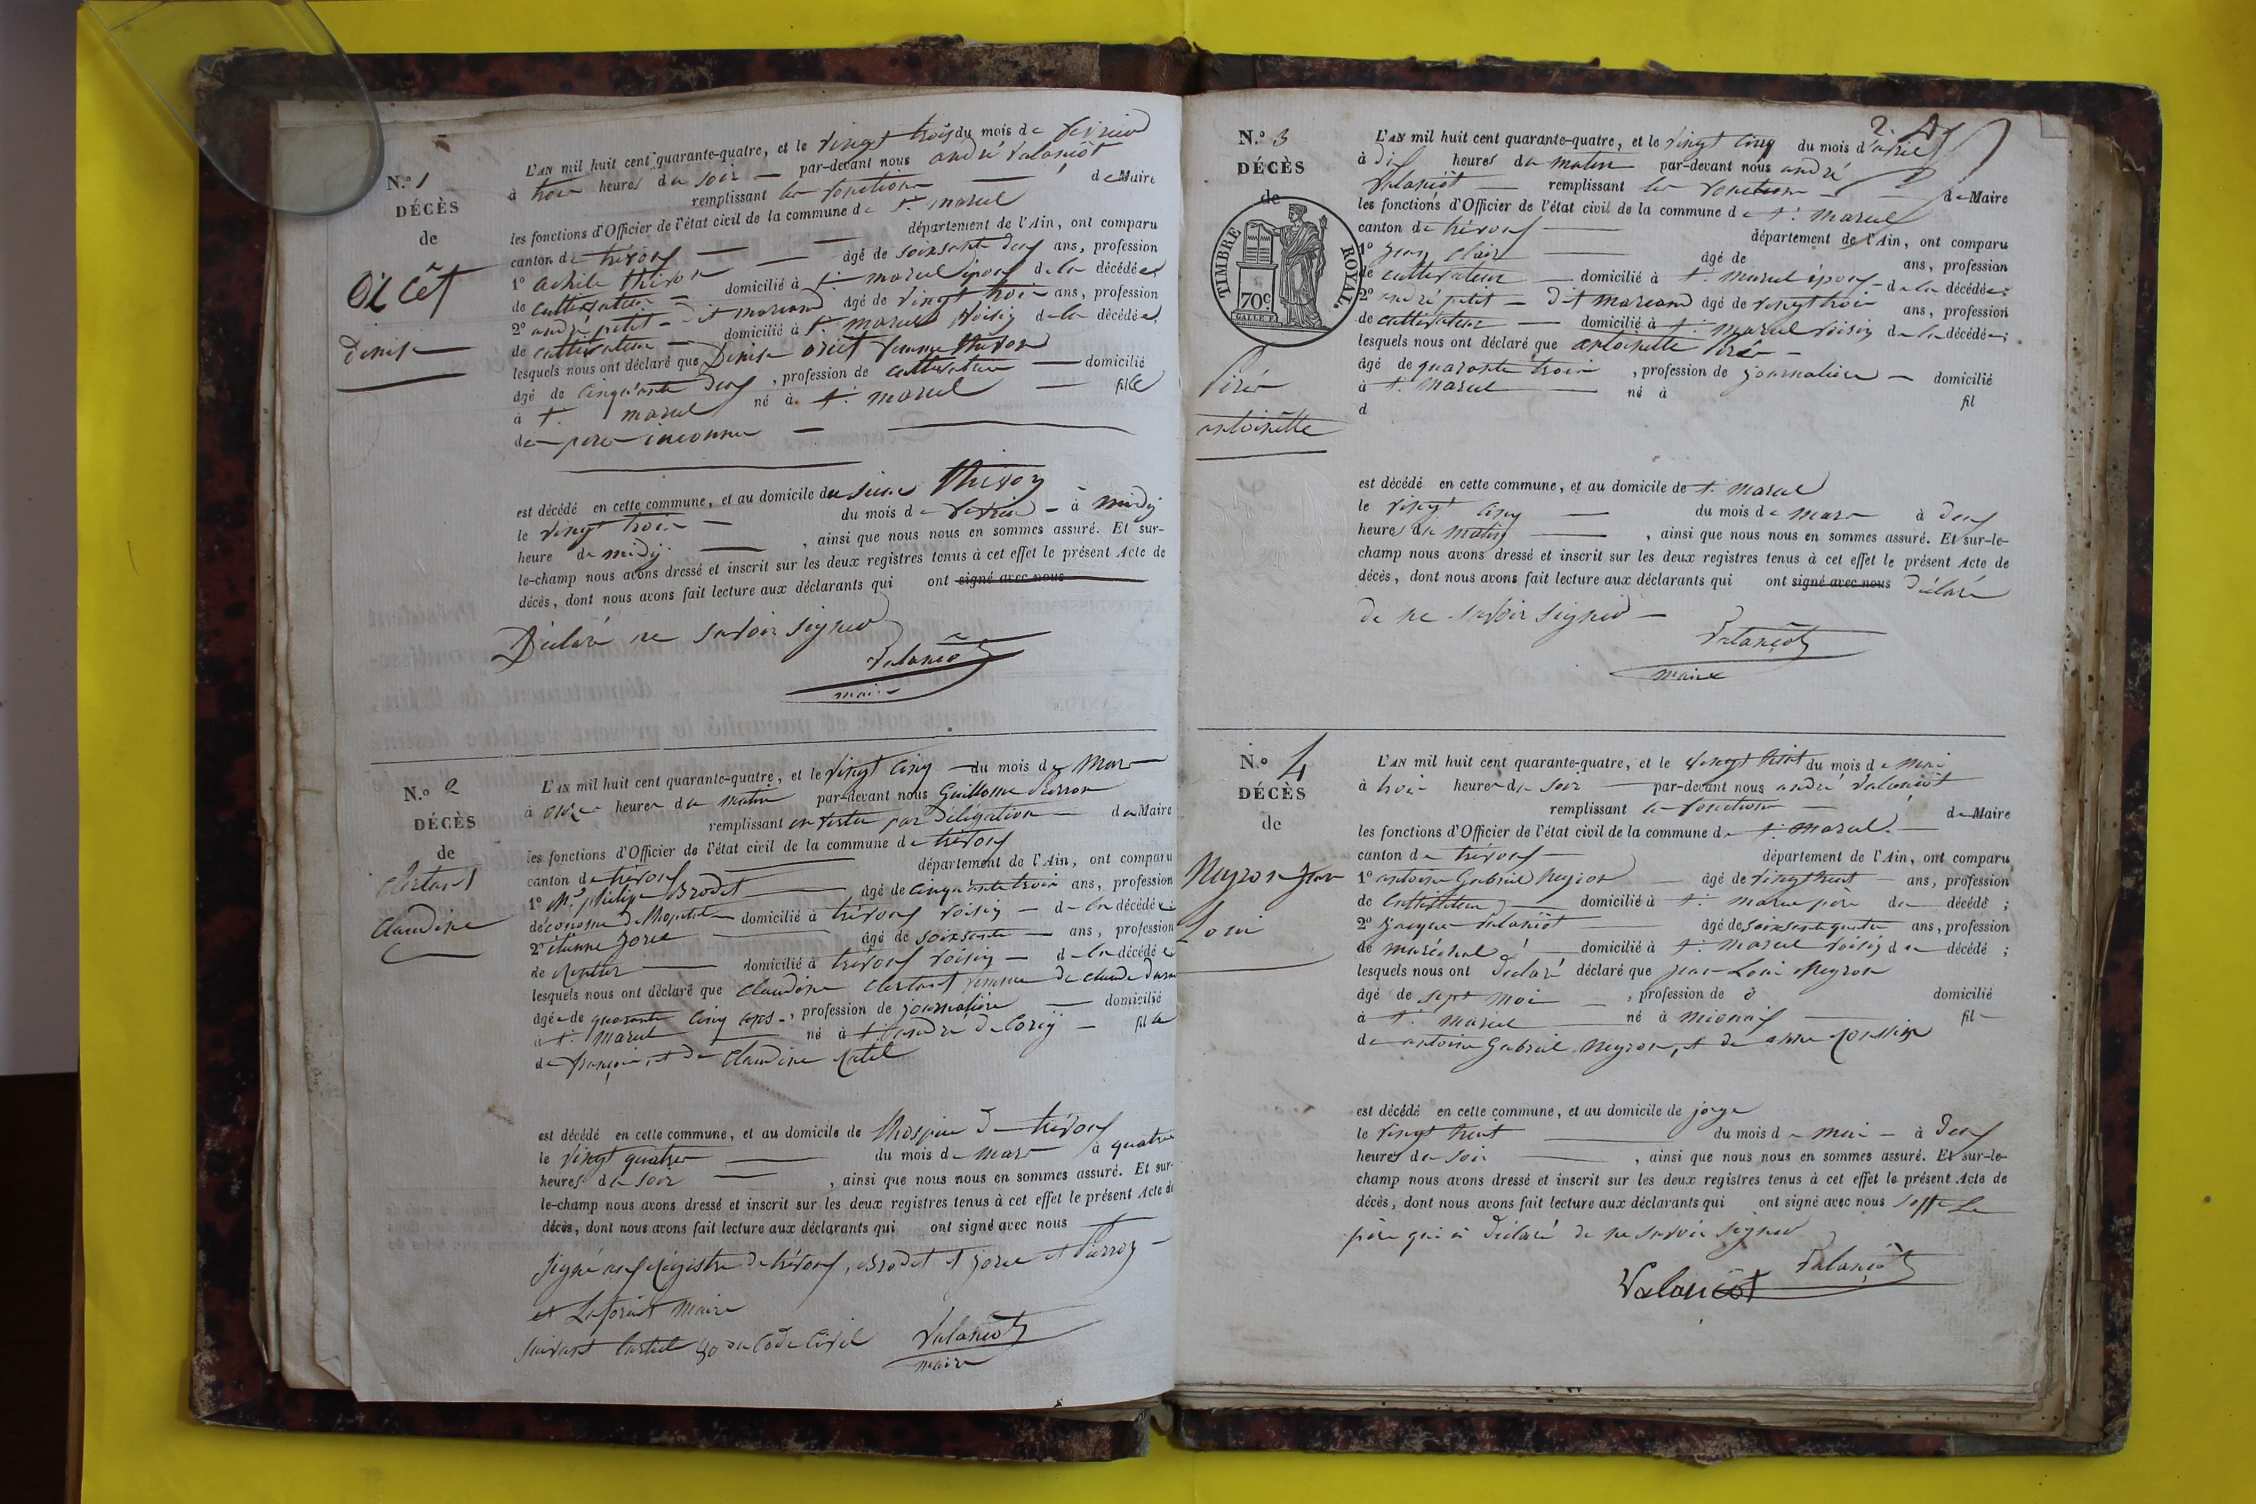 N.º 1
DÉCÈS
de
Oicêt
Denise
L'AN mil huit cent quarante-quatre, et le vingt trois du mois de fevrier
à trois heures du soir par-devant nous andré Valanciôt
remplissant les fonctions de Maire
les fonctions d'Officier de l'état civil de la commune de St. marcel
canton de trévoux département de l'Ain, ont comparu
1º achile thivon âgé de soixante deux ans, profession
de cultivateur domicilié à St. marcel époux de la décédée
2º andré petit dit marcand âgé de vingt trois ans, profession
de cultivateur domicilié à St. marcel voisin de la décédée
lesquels nous ont déclaré que Denise oicet femme thivon
âgé de cinquante deux , profession de cultivateur domicilié
à St. marcel né à St. marcel fille
de père inconnu
est décédé en cette commune, et au domicile du sieur thivon
le vingt trois du mois de fevrier à midy
heure de midy , ainsi que nous nous en sommes assuré. Et sur-
le-champ nous avons dressé et inscrit sur les deux registres tenus à cet effet le présent Acte de
décès, dont nous avons fait lecture aux déclarants qui ont signé avec nous
Déclaré ne savoir signer
Valanciôt
maire
N.º 2
DÉCÈS
de
Claudine
L'AN mil huit cent quarante-quatre, et le vingt cinq du mois de Mars
à onze heures du matin par-devant nous Guillome Pierron
remplissant en vertu par délégation de Maire
les fonctions d'Officier de l'état civil de la commune de trévoux
canton de trévoux département de l'Ain, ont comparu
1º Mr. philipe Brodet âgé de cinquante trois ans, profession
d'économe de l'hopital domicilié à trévoux voisin de la décédée
2º étienne Jorce âgé de soixante ans, profession
de rentier domicilié à trévoux voisin de la décédée
lesquels nous ont déclaré que claudine femme de claude
âgée de quarante cinq ans , profession de journalière domicilié
à St. marcel né à St. andré de Corcy fille
de françois et de Claudine Catel
est décédé en cette commune, et au domicile de l'hospice de trévoux
le vingt quatre du mois de mars à quatre
heures du soir , ainsi que nous nous en sommes assuré. Et sur-
le-champ nous avons dressé et inscrit sur les deux registres tenus à cet effet le présent Acte de
décès, dont nous avons fait lecture aux déclarants qui ont signé avec nous
signé aux Régistre de trévoux, Brodet et Jorce et Pierron
et Laforest maire
suivant l'articl 80 du Code Civil Valanciôt
maire
2.
N.º 3
DÉCÈS
de
TIMBRE ROYAL.
70c
GALLE F.
Piré
antoinette
L'AN mil huit cent quarante-quatre, et le vingt cinq du mois d'avril
à dix heures du matin par-devant nous andré
Valanciôt remplissant les fonctions de Maire
les fonctions d'Officier de l'état civil de la commune de St. marcel
canton de trévoux département de l'Ain, ont comparu
1º Jean Clair âgé de ans, profession
de cultivateur domicilié à St. marcel époux de la décédée;
2º andré petit dit marcand âgé de vingt trois ans, profession
de cultivateur domicilié à St. marcel voisin de la décédée;
lesquels nous ont déclaré que antoinette Piré
âgé de quarante trois , profession de journalière domicilié
à St. marcel né à fil
d
est décédé en cette commune, et au domicile de St. marcel
le vingt cinq du mois de mars à deux
heures du matin , ainsi que nous nous en sommes assuré. Et sur-le-
champ nous avons dressé et inscrit sur les deux registres tenus à cet effet le présent Acte de
décès, dont nous avons fait lecture aux déclarants qui ont signé avec nous déclaré
de ne savoir signer
Valanciôt
maire
N.º 4
DÉCÈS
de
Neyron Jean
Loui
L'AN mil huit cent quarante-quatre, et le vingt huit du mois de mai
à trois heures du soir par-devant nous andré Valanciôt
remplissant les fonctions de Maire
les fonctions d'Officier de l'état civil de la commune de St. marcel
canton de trévoux département de l'Ain, ont comparu
1º antoine Gabriel Neyron âgé de vingt huit ans, profession
de cultivateur domicilié à St. marcel père du décédé ;
2º Jacque Valanciôt âgé de soixante quatre ans, profession
de maréchal domicilié à St. marcel voisin du décédé ;
lesquels nous ont déclaré déclaré que jean Loui Neyron
âgé de sept moi , profession de domicilié
à St. marcel né à mionaÿ fil
de antoine Gabriel Neyron, et de anne
est décédé en cette commune, et au domicile de
le vingt huit du mois de mai à deux
heures du soir , ainsi que nous nous en sommes assuré. Et sur-le-
champ nous avons dressé et inscrit sur les deux registres tenus à cet effet le présent Acte de
décès, dont nous avons fait lecture aux déclarants qui ont signé avec nous soffe le
père qui a déclaré de ne savoir signer
Valanciôt Valanciôt